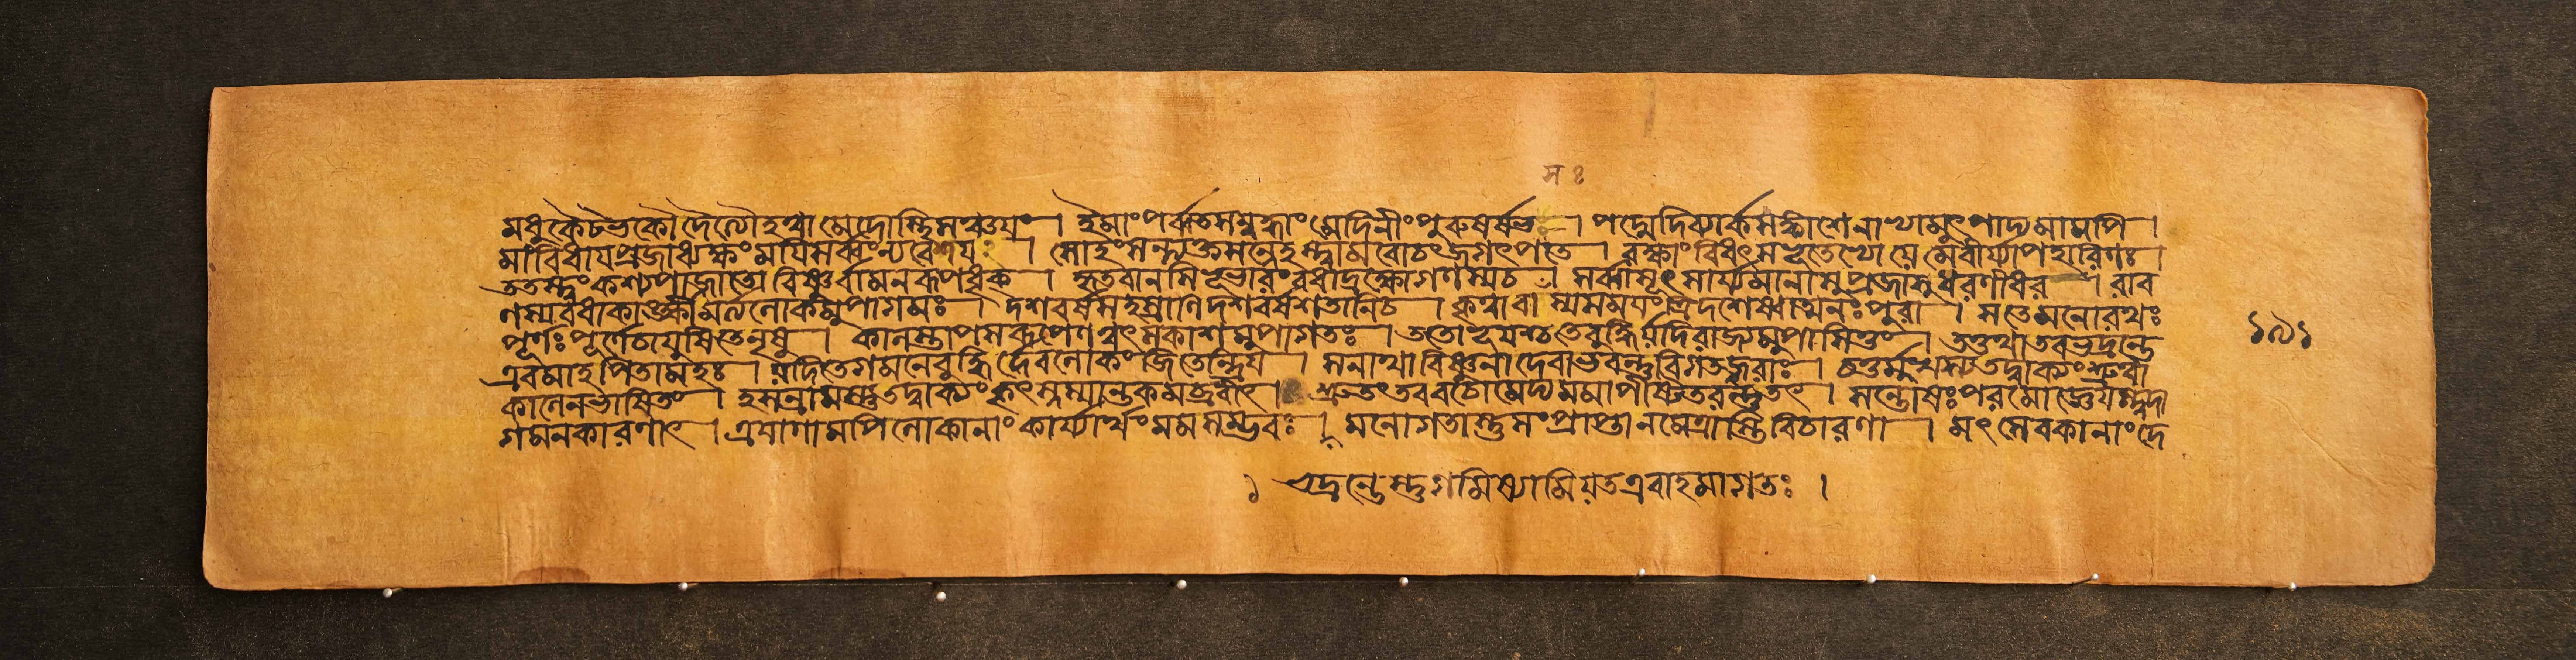 সঃ
মধুকৈটভকৌদৈত্যৌহত্বামেদোস্থিসঞ্চয়ং । ইমাংপর্ব্বতসম্বাধাংমেদিনীংপুরুষর্ষভঃ । পদ্মেদিব্যার্কসঙ্কাশেনাভ্যামুৎপাদ্যমামপি ।
মাংবিধায়প্রজাধ্যক্ষংময়িসর্ব্বংন্যবেশয়ঃ । জগৎপতে । রক্ষাংবিধিৎস বীর্য্যাপহারিণঃ ।
ততস্ত্বংকশ্যপাজ্জাতোবিষ্ণুর্বামনরূপধৃক । হৃতবানসিভূভারংবধাদ্রক্ষোগণস্যচ । সর্ব্বাসূৎসার্য্যমানাসুপ্রজাসুধরণীধর । রাব
ণস্যবধাকাঙ্ক্ষীমর্ত্যলোকমুপাগমঃ । দশবর্ষসহস্রাণিদশবর্ষশতানিচ । কৃত্বাবাসস্যসময়ংত্রিদশেষ্বাত্মনঃপুরা । সতেমনোরথঃ
পূর্ণঃপূর্ণেচায়ুষিতেনৃষু । কালস্তাপসরূপেণত্বৎসকাশমুপাগতঃ । ততোভূয়শ্চতেবুদ্ধির্যদিরাজ্যমুপাসিতুং । তত্তথাতবভদ্রন্তে
এবমাহপিতামহঃ । যদিতেগমনেবুদ্ধির্দেবলোকংজিতেন্দ্রিয় । সনাথাবিষ্ণুনাদেবাভবন্তুবিগতজ্বরাঃ । চতুর্ম্মুখস্যতদ্বাক্যংশ্রুত্বা
কালেনভাষিতং । হসন্রামস্তুতদ্বাক্যংকৃৎস্নস্যান্তকমব্রবীৎ । শ্রুতংতববচোমেদ্যমমাপীষ্টতরন্তুতৎ । সন্তোষঃপরমো
গমনকারণাৎ । ত্রয়াণামপিলোকানাংকার্য্যার্থংমমসম্ভবঃ । মনোগতাস্তুসংপ্রাপ্তোনমেত্রাস্তিবিচারণা । মৎসেবকানাংদে
১৯১
১ ভদ্রন্তেস্তুগমিষ্যামিযতএবাহমাগতঃ ।